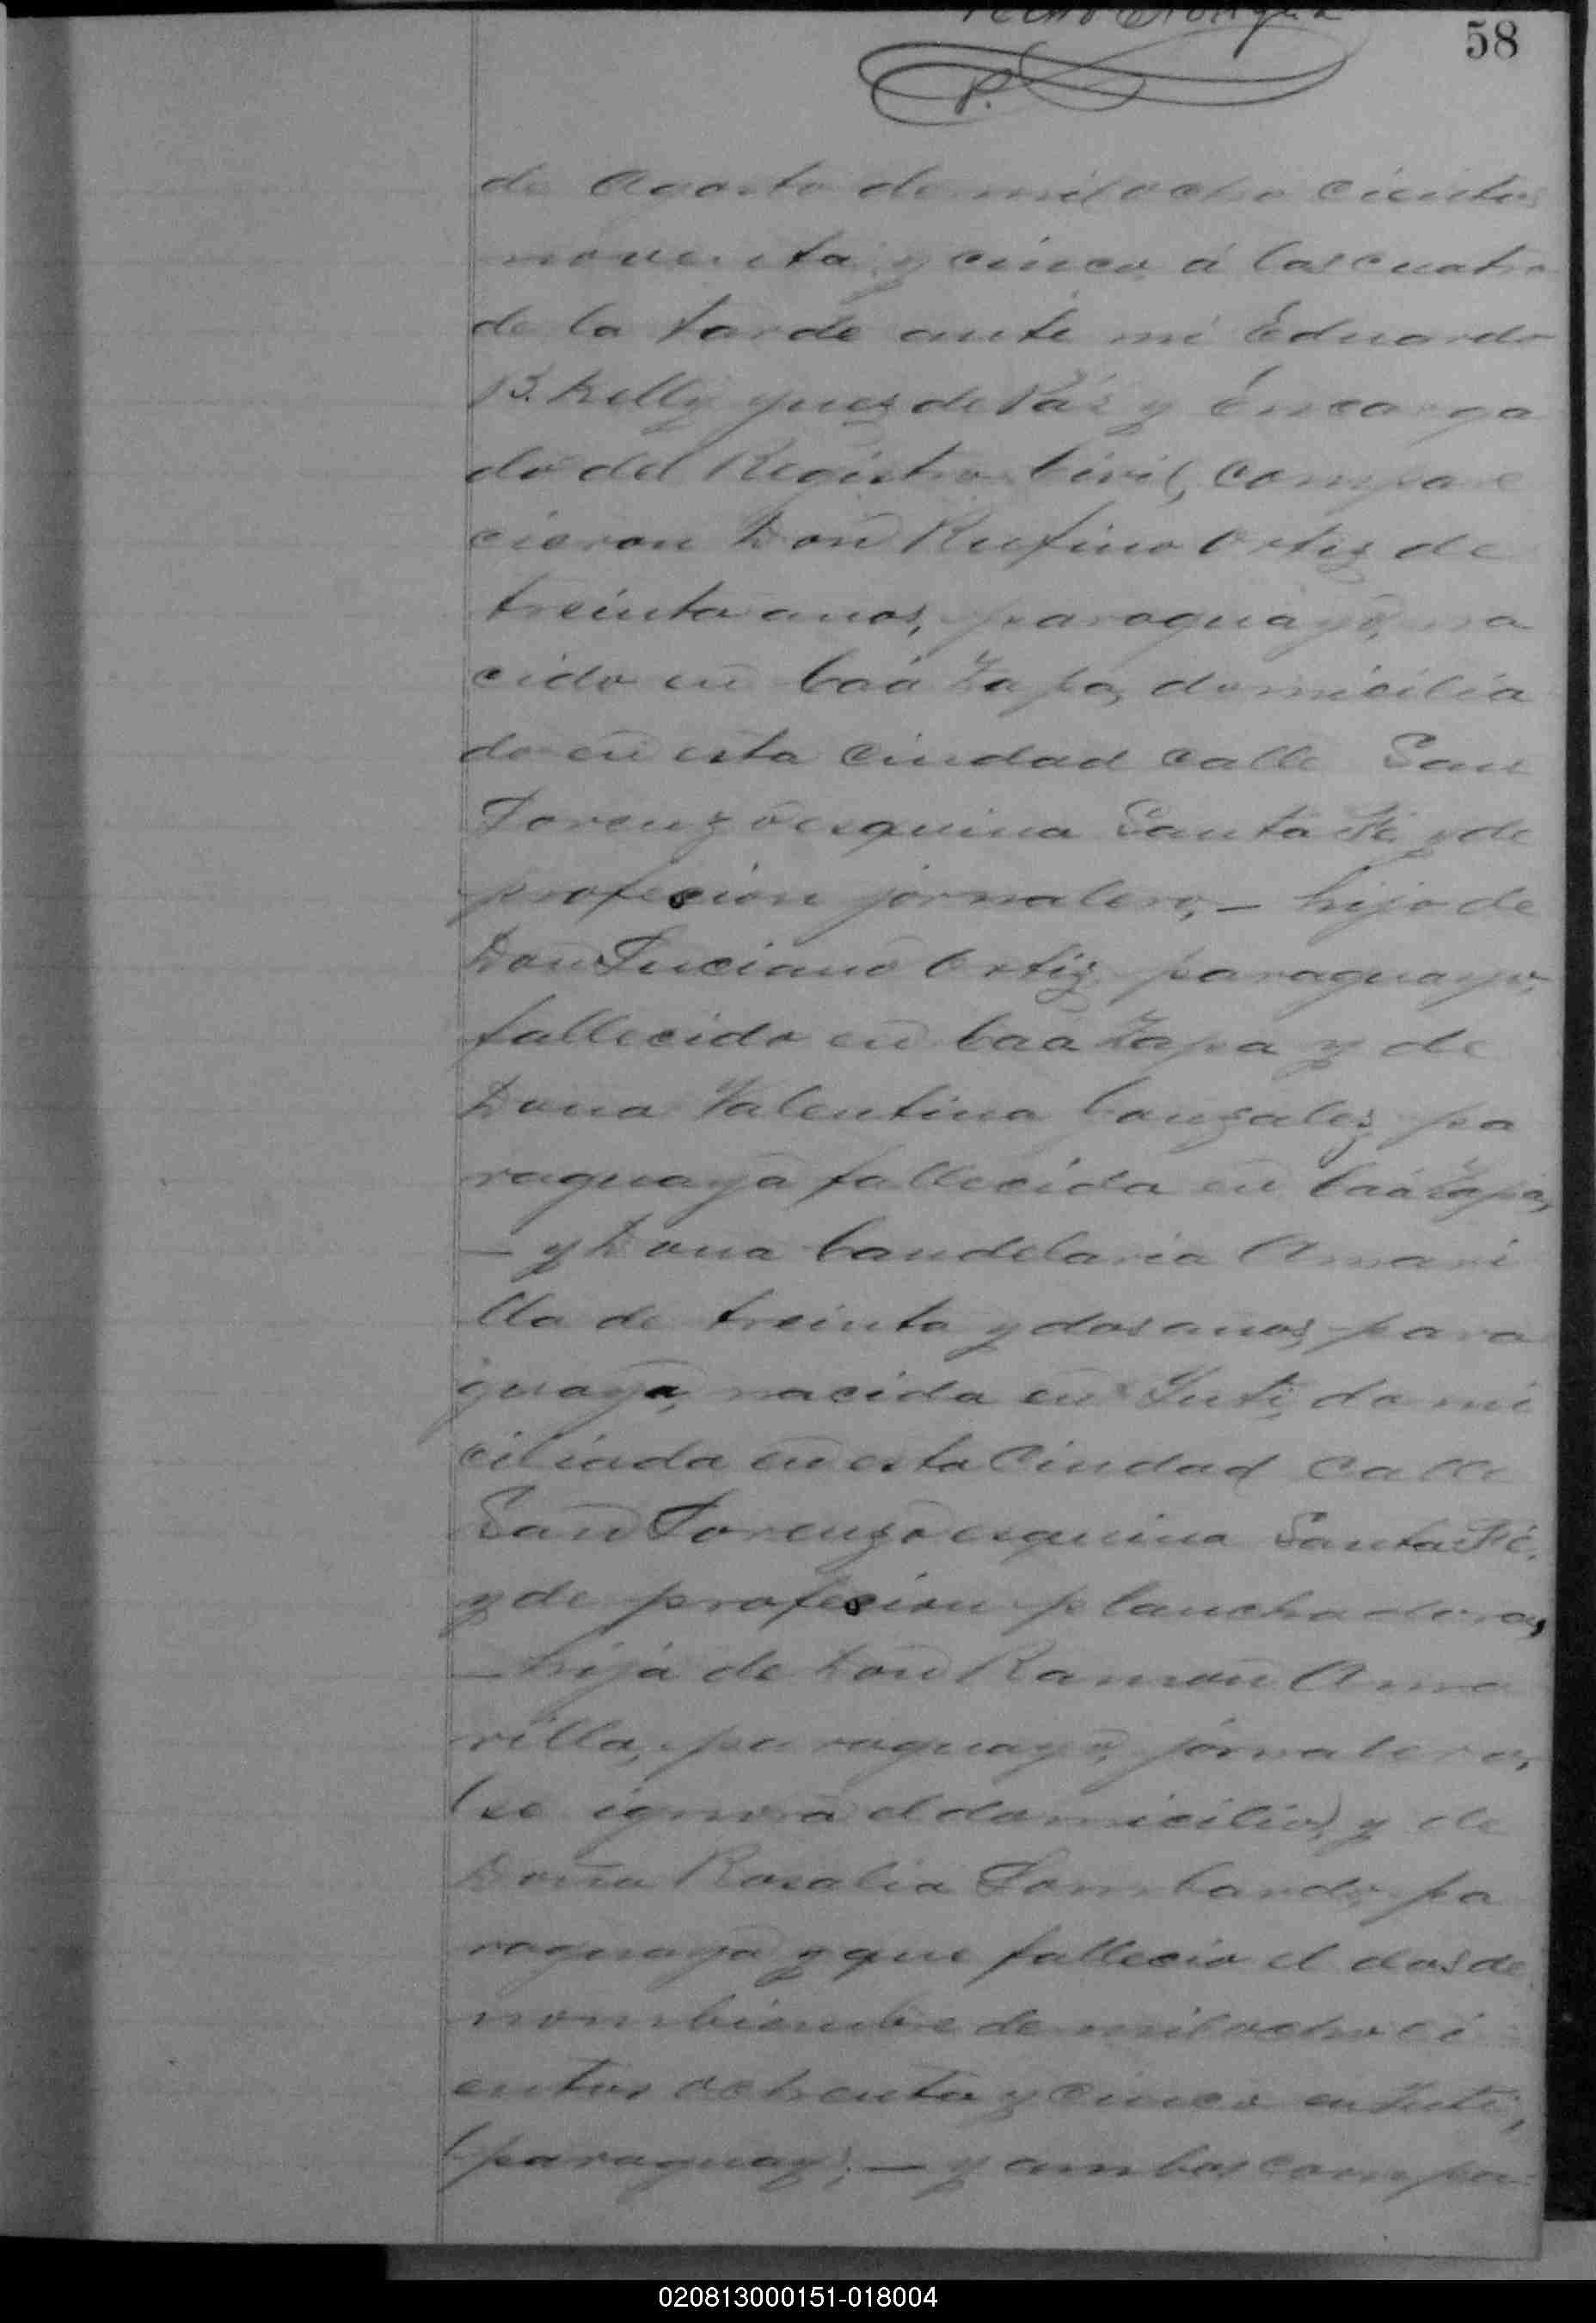 58
P.
de Agosto de mil ocho cientos
noventa y cinco á las cuatro
de la tarde ante mi Eduardo
B. Kelly juez de Páz y Encarga
do del Registro Civil, compare
cieron Don Rufino Ortiz de
treinta anos, paraguayo, na
cido en Caá Zapa, domicilia
do en esta Ciudad calle San
Lorenzo esquina Santa Fé y de
profecion jornalero, — hijo de
Don Luciano Ortiz paraguayo,
fallecido en Caá Zapa y de
Dona Valentina Gonzalez pa
raguaya fallecida en Caá Zapa,
— y Dona Candelaria Amari
lla de treinta y dos anos, para
guaya, nacida en Yuti, domi
ciliada en esta Ciudad Calle
San Lorenzo esquina Santa Fé,
y de profecion planchadora,
— hija de Don Ramon Ama
rilla, paraguayo, jornalero,
(se ignora el domicilio) y de
Dona Rosalia Lombardo, pa
raguaya y que fallecio el dos de
nombiembre de mil ochoci
entos ochenta y cinco en Yuti,
(paraguay). — y ambos compa
020813000151-018004